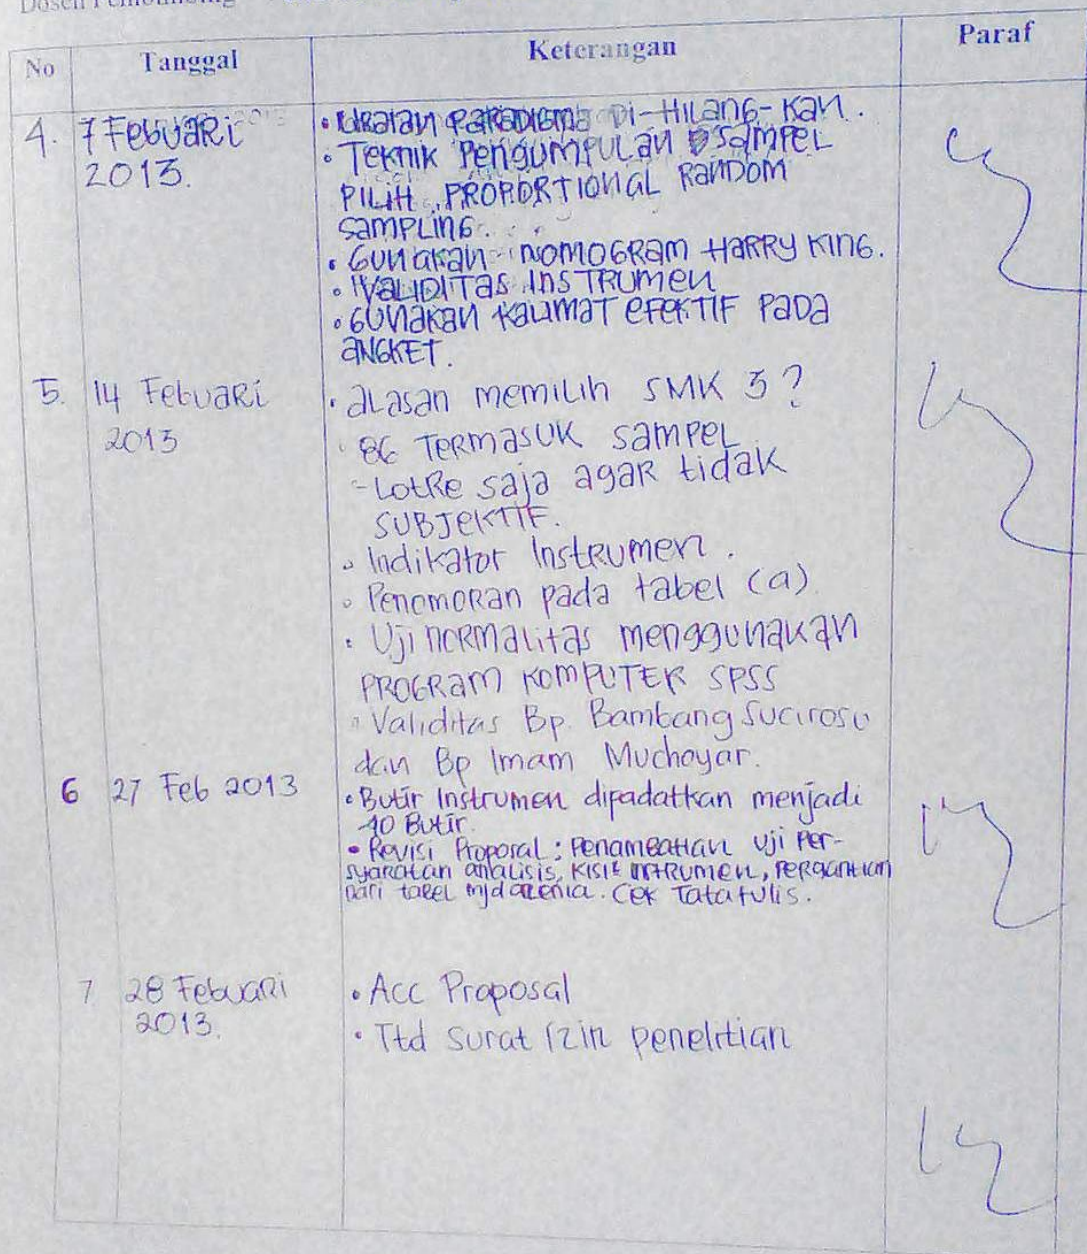 Dosen Pembimbing
No Tanggal Keterangan Paraf
4. 7 Febuari 2013.
• Uraian Paradigma Di-Hilang-kan.
• Teknik Pengumpulan sampel
Pilih Proportional Random
Sampling.
• Gunakan nomogram Harry King.
• Validitas Instrumen
• Gunakan kalimat efektif pada
angket.
5. 14 Febuari
2013
• alasan memilih SMK 3?
86 termasuk sampel
- Lotre saja agar tidak
subjektif.
• Indikator Instrumen.
• Penomoran pada tabel (a)
• Uji normalitas menggunakan
program komputer SPSS
• Validitas Bp. Bambang
dan Bp Imam Muchoyar.
6 27 Feb 2013
• Butir Instrumen dipadatkan menjadi
40 Butir.
• Revisi Proposal: Penambahan Uji Per-
syaratan analisis, kisi2 instrumen,
dari tabel mjd. Cek Tata tulis.
7 28 Febuari
2013.
• Acc Proposal
• Ttd surat izin penelitian